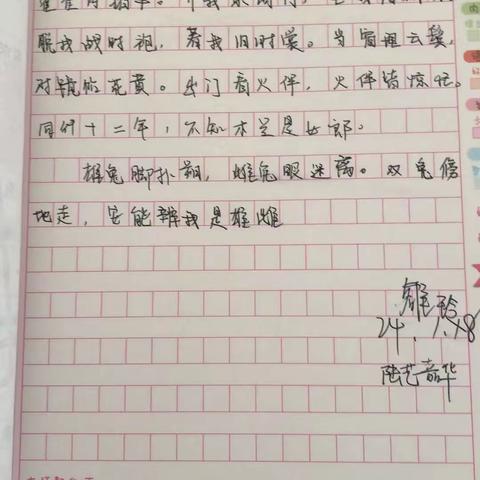 脱我战时袍，着我旧时裳。当窗理云鬓，
对镜帖花黄。出门看火伴，火伴皆惊忙。
同行十二年，不知木兰是女郎。
雄兔脚扑朔，雌兔眼迷离。双兔傍
地走，安能辨我是雄雌
24.1.18
陆艺嘉华